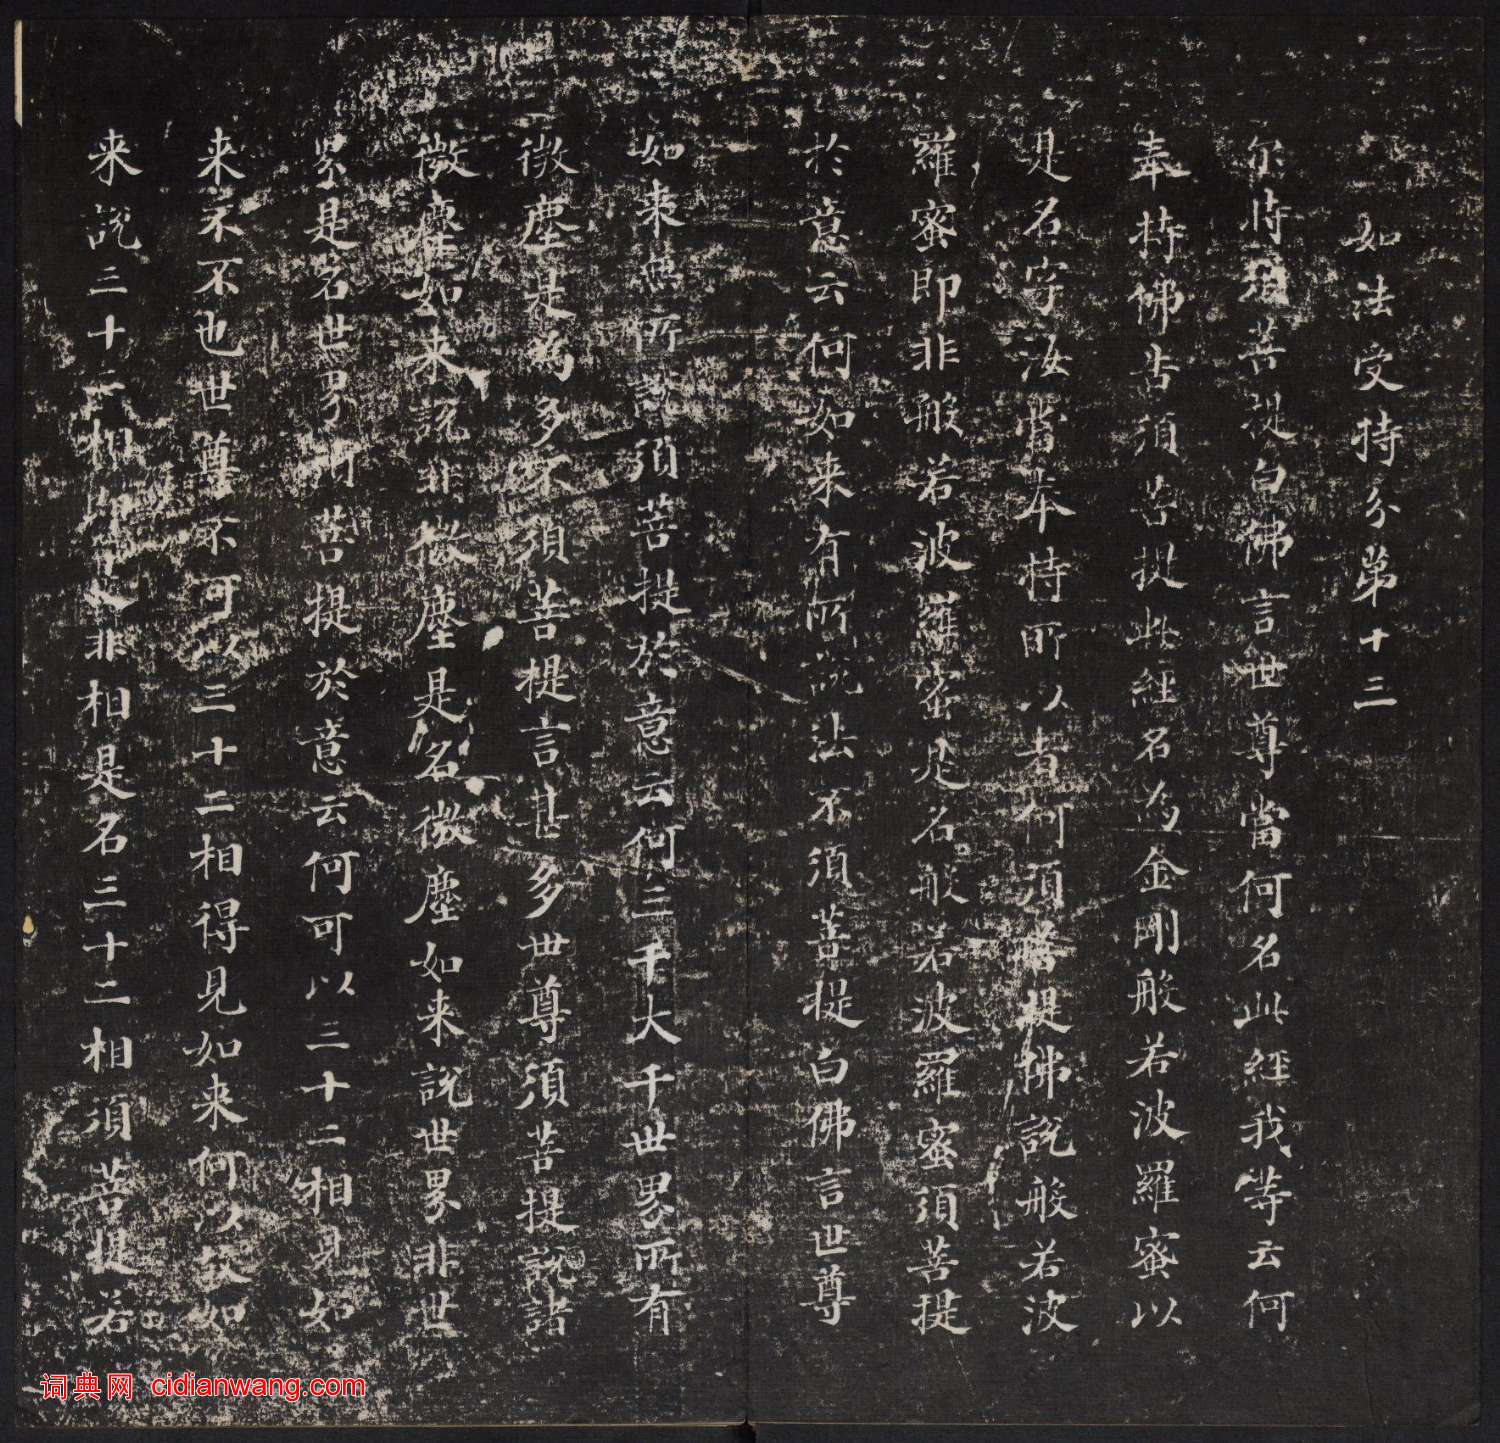 如法受持分第十三
尔時須菩提白佛言世尊當何名此經我等云何
奉持佛告須菩提此經名為金剛般若波羅蜜以
是名字汝當奉持所以者何須菩提佛說般若波
羅蜜即非般若波羅蜜是名般若波羅蜜須菩提
於意云何如来有所說法不須菩提白佛言世尊
如来無所說須菩提於意云何三千大千世界所有
微塵是為多不須菩提言甚多世尊須菩提說諸
微塵如来說非微塵是名微塵如来說世界非世
界是名世界須菩提於意云何可以三十二相見如
来不不也世尊不可以三十二相得見如来何以故如
来說三十二相即是非相是名三十二相須菩提若
词典网 cidianwang.com